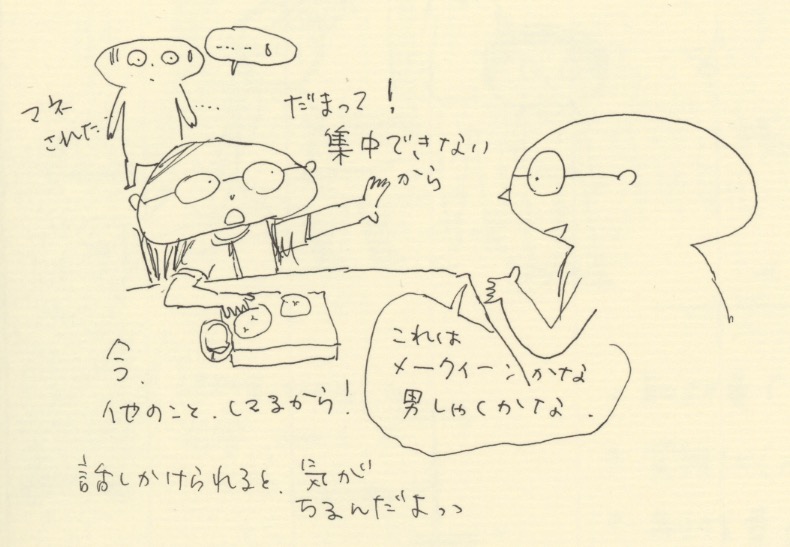 ・・・・。
マネ
された・・
・・・・
だまって!
集中できない
から
これは
メークイーンかな
男しゃくかな.
今、
他のこと、してるから!
話しかけられると、気が
ちるんだよっっ